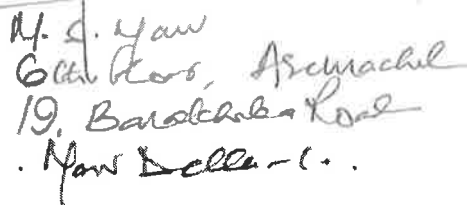 M. J. Maw
6th Floor, Arunachal
19, Barakhamba Road
New Delhi - 1.